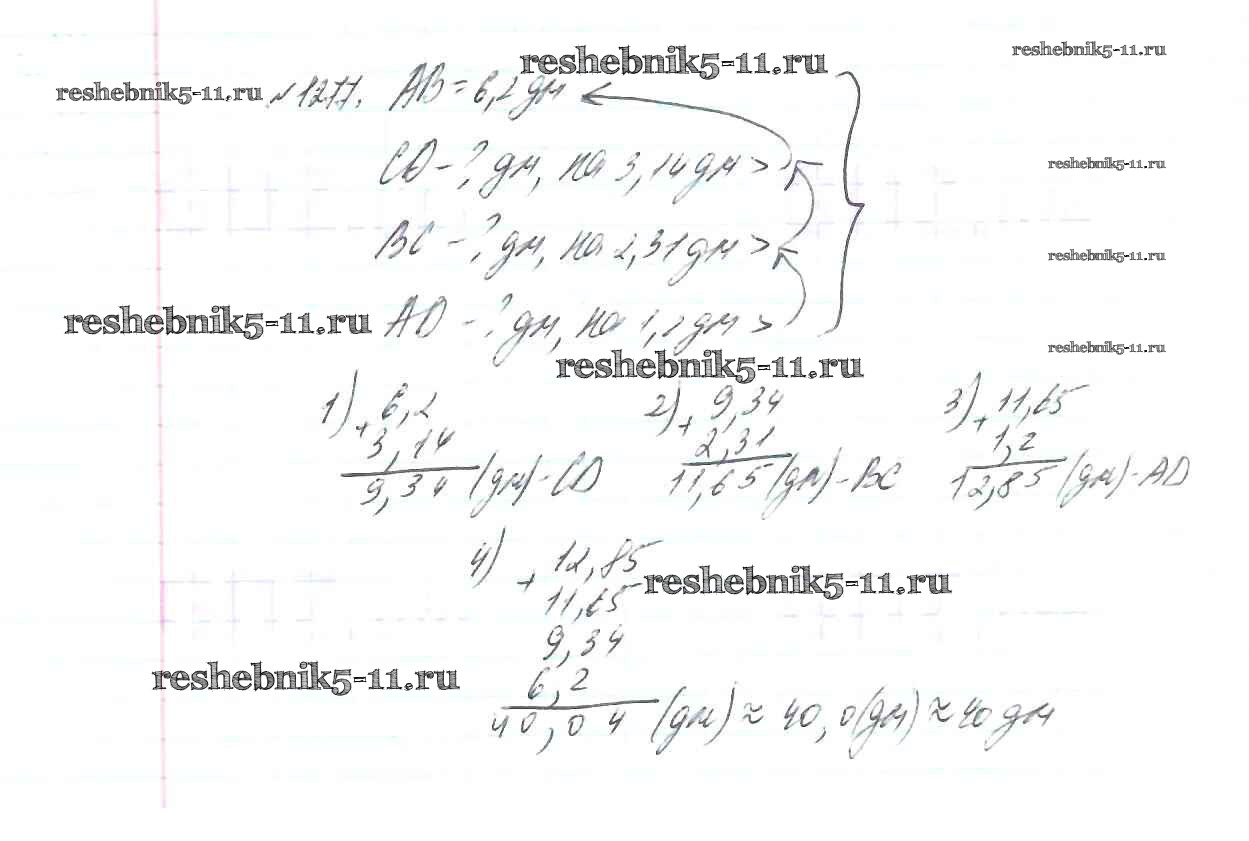 reshebnik5-11.ru
reshebnik5-11.ru
reshebnik5-11.ru №1277. AB = 6,2 дм
CD - ? дм, на 3,14 дм >
reshebnik5-11.ru
BC - ? дм, на 2,31 дм >
reshebnik5-11.ru
reshebnik5-11.ru AD - ? дм, на 1,2 дм >
reshebnik5-11.ru
reshebnik5-11.ru
1) + 6,2
3,14
9,34 (дм) - CD
2) + 9,34
2,31
11,65 (дм) - BC
3) + 11,65
1,2
12,85 (дм) - AD
4) + 12,85
reshebnik5-11.ru
11,65
9,34
reshebnik5-11.ru
6,2
40,04 (дм) ≈ 40,0 (дм) ≈ 40 дм